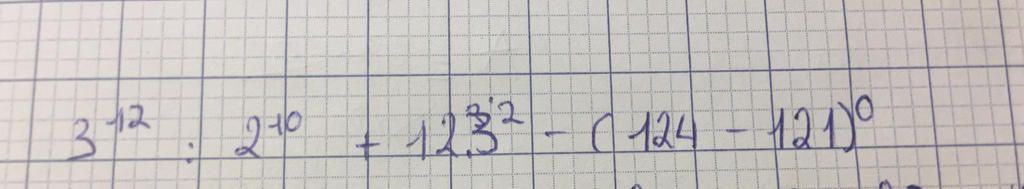 3^-12 : 2^-10 + 12.3^2 - (124 - 121)^0